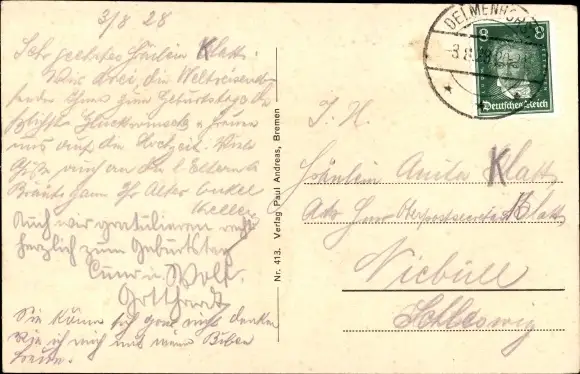 3/8 28
Sehr geehrtes Fräulein Klatt.
Wir drei, die Weltreisenden
senden Ihnen zum Geburtstage die
herzlichsten Glückwünsche u. freuen
uns auf die Hochzeit. Viele
Grüße auch an die l. Eltern u.
Ihr Alter Onkel
Keller
Auch wir gratulieren recht
herzlich zum Geburtstag
u. Wolf.
Gotthardt
Sie können sich gar nicht denken
wie ich mich
freue.
Nr. 413. Verlag Paul Andreas, Bremen
DELMENHORST
3.8.28
8 8
Deutsches Reich
Fräulein Anita Klatt
Adr Herrn Oberpostsekretär Klatt
Niebüll
Schleswig